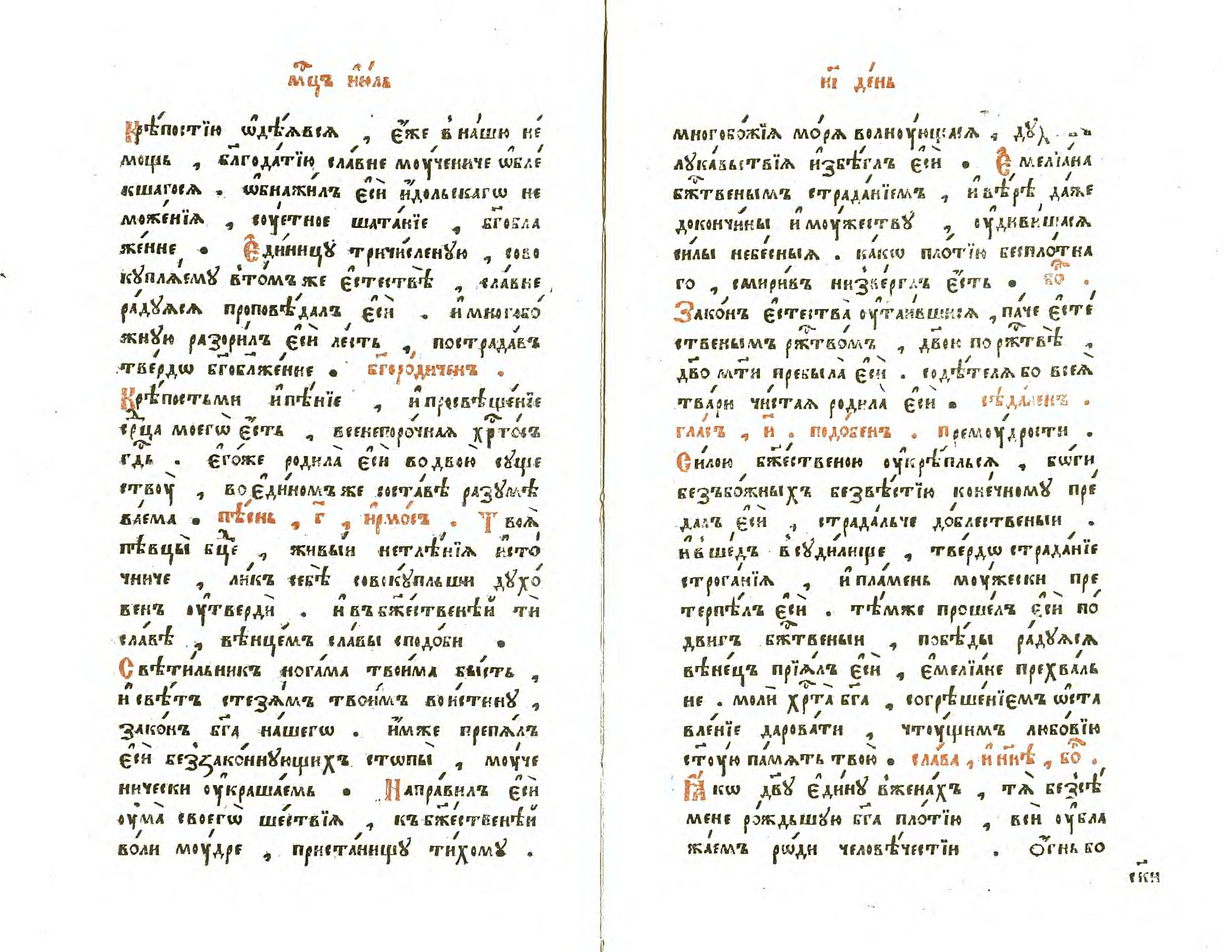 мⷭ҇цъ і҆ю́ль
Крѣ́постїю ѡ҆дѣ́ѧвсѧ , є҆́же в на́шю не́
мощь , бл҃года́тїю сла́вне моу́чениче ѡ҆бле́
кшагосѧ . ѡ҆бнажи́лъ є҆сѝ и҆́дольскагѡ не
може́нїѧ , соу́етное шата́нїе , бг҃обла
же́нне • Є҆ди́ницу тричи́сленую , сово
куплѧ́ему в то́мъ же є҆стествѣ̀ , сла́вне ,
ра́дуѧсѧ проповѣ́далъ є҆сѝ . и҆ многобо́
жную разори́лъ є҆сѝ ле́сть , пострада́въ
тве́рдѡ бг҃обла́женне • бг҃оро́диченъ .
Крѣ́постьми и҆ пѣ́нїе , и҆ просвѣще́нїе
се́рⷣца моегѡ̀ є҆́сть , всенепоро́чнаѧ хрⷭ҇то́съ
гдⷭ҇ь . є҆го́же родила̀ є҆сѝ во двою̀ су́ще
ствоу̀ , во є҆ди́номъ же соста́вѣ разумѣ́
ваема • пѣ́снь , г҃ , і҆рмо́съ . Твоѧ̑
пѣвцы̀ бцⷣе , живы́и нетлѣ́нїѧ и҆сто́
чниче , ли́къ себѣ̀ совоку́пльши духо́
венъ оу҆твердѝ . и҆ въ бж҃е́ственѣй ти
сла́вѣ , вѣнце́мъ сла́вы сподо́би •
Свѣти́льникъ нога́ма твои́ма бы́сть ,
и҆ свѣ́тъ стезѧ́мъ твои́мъ вои́стину ,
зако́нъ бг҃а на́шегѡ . и҆́мже препѧ́лъ
є҆сѝ беззако́ннующихъ стѡпы̀ , моу́че
нически оу҆краша́емь • Напра́вилъ є҆сѝ
оу҆ма̀ своегѡ̀ ше́ствїѧ , къ бж҃е́ственѣй
во́ли моу́дре , приста́нищу ти́хому .
н҃і де́нь
многобо́жїѧ мо́рѧ волноу́ющаѧсѧ , дух
лука́вьствїѧ и҆збѣ́глъ є҆сѝ • Є҆мелїа́на
бжⷭ҇твенымъ страда́нїемъ , и҆ вѣ́рѣ да́же
до кончи́ны и҆ моу́жеству , оу҆диви́шасѧ
си́лы небе́сныѧ . ка́кѡ пло́тїю беспло́тна
го , смири́въ низве́рглъ є҆́сть • бо҃ .
Зако́нъ є҆стества̀ оу҆таи́вшисѧ , па́че є҆сте́
ственымъ ржⷭ҇тво́мъ , дв҃ою по ржⷭ҇твѣ̀ ,
дв҃о мт҃и пребыла̀ є҆сѝ . содѣ́телѧ бо всеѧ̀
тва́ри чи́стаѧ родила̀ є҆сѝ • сѣда́ленъ .
гла́съ , и҃ . подо́бенъ . Прему́дрости .
Си́лою бж҃е́ственою оу҆крѣ́пльсѧ , бѡ́ги
безъбо́жныхъ безвѣ́стїю коне́чному пре́
далъ є҆сѝ , страда́льче до́блественыи .
и҆ вше́дъ в суди́лище , тве́рдѡ страда́нїе
строга́нїѧ , и҆ пла́мень моу́жески пре
терпѣ́лъ є҆сѝ . тѣ́мже проше́лъ є҆сѝ по́
двигъ бжⷭ҇твеныи , побѣ́ды ра́дуѧсѧ
вѣне́цъ прїѧ́лъ є҆сѝ , є҆мелїа́не прехва́ль
не . молѝ хрⷭ҇та̀ бг҃а , согрѣше́нїемъ ѡ҆ста
вле́нїе дарова́ти , чтоу́щимъ любо́вїю
ст҃оу́ю па́мѧть твою̀ • сла́ва , и҆ нн҃ѣ , бо҃ .
Ꙗ҆́кѡ дв҃у є҆ди́ну в жена́хъ , тѧ̀ безсѣ́
мене ро́ждьшую бг҃а пло́тїю , всѝ оу҆бла
жа́емъ рѡ́ди человѣ́чествїи . Ѻ҆́гнь бо
ск҃и